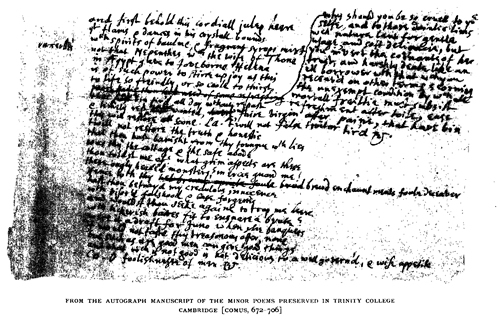 and first behold this cordiall julep heere
that flames & dances in his crystall bounds
wth spirits of baulme & fragrant syrops mixt
not that Nepenthes wch the wife of Thone
in Ægypt gave to Jove-borne Helena
is of such power to stirre up joy as this
to life so freindly or so coole to thirst
why should you be so cruel to yor
selfe, and to those daintie lims
wch nature lent for gentle
usage, and soft delicacie, but
you invert the cov'nants of her
trust, and harshly deale like an
ill borrower wth that
you receav'd on other termes, scorning
the unexempt condition by wch
all mortall frailtie must subsist
refreshment after toile, ease
after paine, that have bin
all day without repast
& timely rest have wanted heere faire virgin
this will restore all soone. La. t'will not false traitor
t'will not restore the truth & honestie
that thou hast banisht from thy tongue wth lies
was this the cottage & the safe abode
thou toldst me of? what grim aspects are these
these ougly headed monsters? mercie guard me!
hence wth thy brewd enchauntments foule deceaver
hast thou betrai'd my credulous innocence
wth visor'd falshood & base forgeries
and wouldst thou seeke againe to trap me heere
wth lickerish baites fit to ensnare a brute?
were it a draft for Juno when she banquets
I would not tast thy treasonous offer. none
but such as are good men can give good things
and that wch is not good is not delicious to a well govern'd, & wise appetite
Co. O foolishnesse of men
FROM THE AUTOGRAPH MANUSCRIPT OF THE MINOR POEMS PRESERVED IN TRINITY COLLEGE
CAMBRIDGE [COMUS, 672-706]